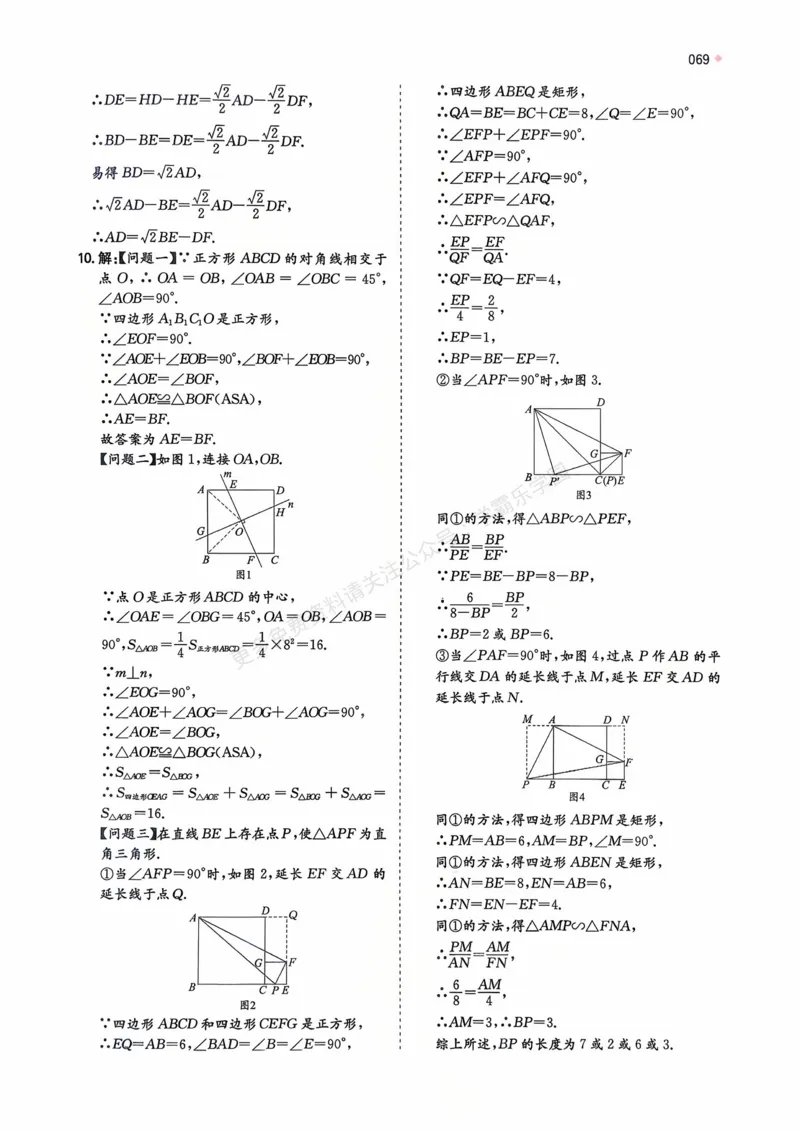 069
∴DE=HD-HE=√2/2 AD-√2/2 DF,
∴BD-BE=DE=√2/2 AD-√2/2 DF.
易得 BD=√2AD,
∴√2AD-BE=√2/2 AD-√2/2 DF,
∴AD=√2BE-DF.
10. 解:【问题一】∵正方形 ABCD 的对角线相交于
点 O,∴OA=OB,∠OAB=∠OBC=45°,
∠AOB=90°.
∵四边形 A₁B₁C₁O 是正方形,
∴∠EOF=90°.
∵∠AOE+∠EOB=90°,∠BOF+∠EOB=90°,
∴∠AOE=∠BOF,
∴△AOE≌△BOF(ASA),
∴AE=BF.
故答案为 AE=BF.
【问题二】如图 1,连接 OA,OB.
m
A E D
H n
G O
B F C
图1
∵点 O 是正方形 ABCD 的中心,
∴∠OAE=∠OBG=45°,OA=OB,∠AOB=
90°,S△AOB=1/4 S正方形ABCD=1/4×8²=16.
∵m⊥n,
∴∠EOG=90°,
∴∠AOE+∠AOG=∠BOG+∠AOG=90°,
∴∠AOE=∠BOG,
∴△AOE≌△BOG(ASA),
∴S△AOE=S△BOG,
∴S四边形OEAG=S△AOE+S△AOG=S△BOG+S△AOG=
S△AOB=16.
【问题三】在直线 BE 上存在点 P,使△APF 为直
角三角形.
①当∠AFP=90°时,如图 2,延长 EF 交 AD 的
延长线于点 Q.
A D Q
G F
B C P E
图2
∵四边形 ABCD 和四边形 CEFG 是正方形,
∴EQ=AB=6,∠BAD=∠B=∠E=90°,
∴四边形 ABEQ 是矩形,
∴QA=BE=BC+CE=8,∠Q=∠E=90°,
∴∠EFP+∠EPF=90°.
∵∠AFP=90°,
∴∠EFP+∠AFQ=90°,
∴∠EPF=∠AFQ,
∴△EFP∽△QAF,
∴EP/QF=EF/QA.
∵QF=EQ-EF=4,
∴EP/4=2/8,
∴EP=1,
∴BP=BE-EP=7.
②当∠APF=90°时,如图 3.
A D
G F
B P' C(P)E
图3
同①的方法,得△ABP∽△PEF,
∴AB/PE=BP/EF.
∵PE=BE-BP=8-BP,
∴6/(8-BP)=BP/2,
∴BP=2 或 BP=6.
③当∠PAF=90°时,如图 4,过点 P 作 AB 的平
行线交 DA 的延长线于点 M,延长 EF 交 AD 的
延长线于点 N.
M A D N
G F
P B C E
图4
同①的方法,得四边形 ABPM 是矩形,
∴PM=AB=6,AM=BP,∠M=90°.
同①的方法,得四边形 ABEN 是矩形,
∴AN=BE=8,EN=AB=6,
∴FN=EN-EF=4.
同①的方法,得△AMP∽△FNA,
∴PM/AN=AM/FN,
∴6/8=AM/4,
∴AM=3,∴BP=3.
综上所述,BP 的长度为 7 或 2 或 6 或 3.